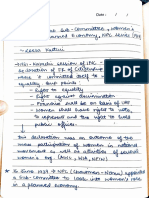 Date: /
Sub-Committee, Women's
Planned Economy, NPC Series 1947
- Leela Kasturi
→ 1931: Karachi session of INC -
Declaration of FR of Citizenship
was & committed itself to
equality. Four points:
- Right to equality
- Right against discrimination
- Franchise will be on basis of UAF
- Women shall have right to vote
to represent and the right to hold
public offices.
→ This declaration was an outcome of the
mass participation of women in national
movement & with the activities of several
women's org. (AIWC, WIA, NCIW)
Since 1937 → NPC (Chairman - Nehru) appointed
a Sub-Committee to look into women's role
in a planned economy.